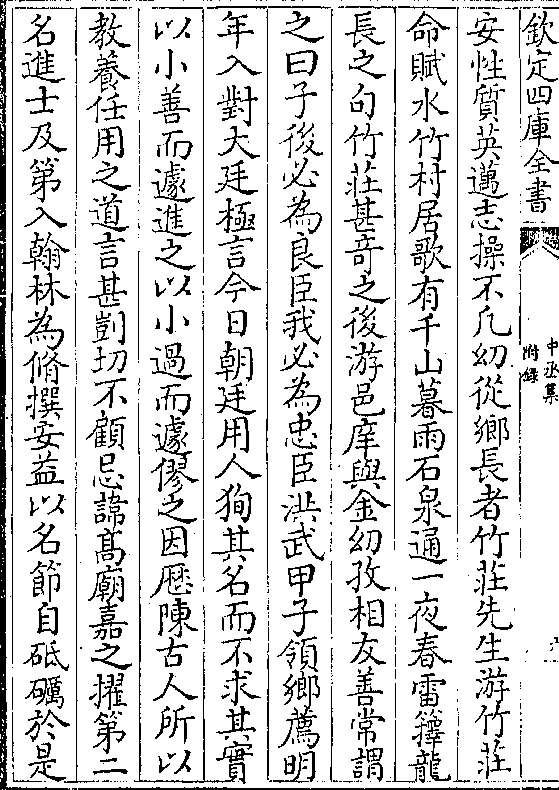 欽定四庫全書
中丞集
附錄
安性質英邁志操不凡幼從鄉長者竹莊先生游竹莊
命賦水竹村居歌有千山暮雨石泉通一夜春雷籜龍
長之句竹莊甚竒之後游邑庠與金幼孜相友善常謂
之曰子後必為良臣我必為忠臣洪武甲子領鄉薦明
年入對大廷極言今日朝廷用人狥其名而不求其實
以小善而遽進之以小過而遽僇之因厯陳古人所以
教養任用之道言甚剴切不顧忌諱髙廟嘉之擢第二
名進士及第入翰林為脩撰安益以名節自砥礪於是